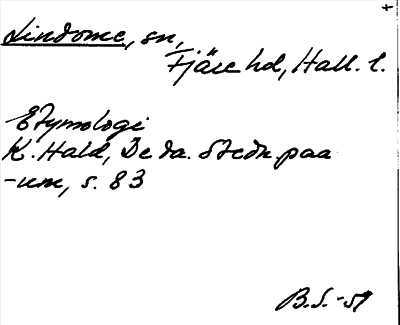 Lindome, sn,
Fjäre hd, Hall. l.
Etymologi
K. Hald, De da. Stedn. paa
-um, s. 83
B.S. -59